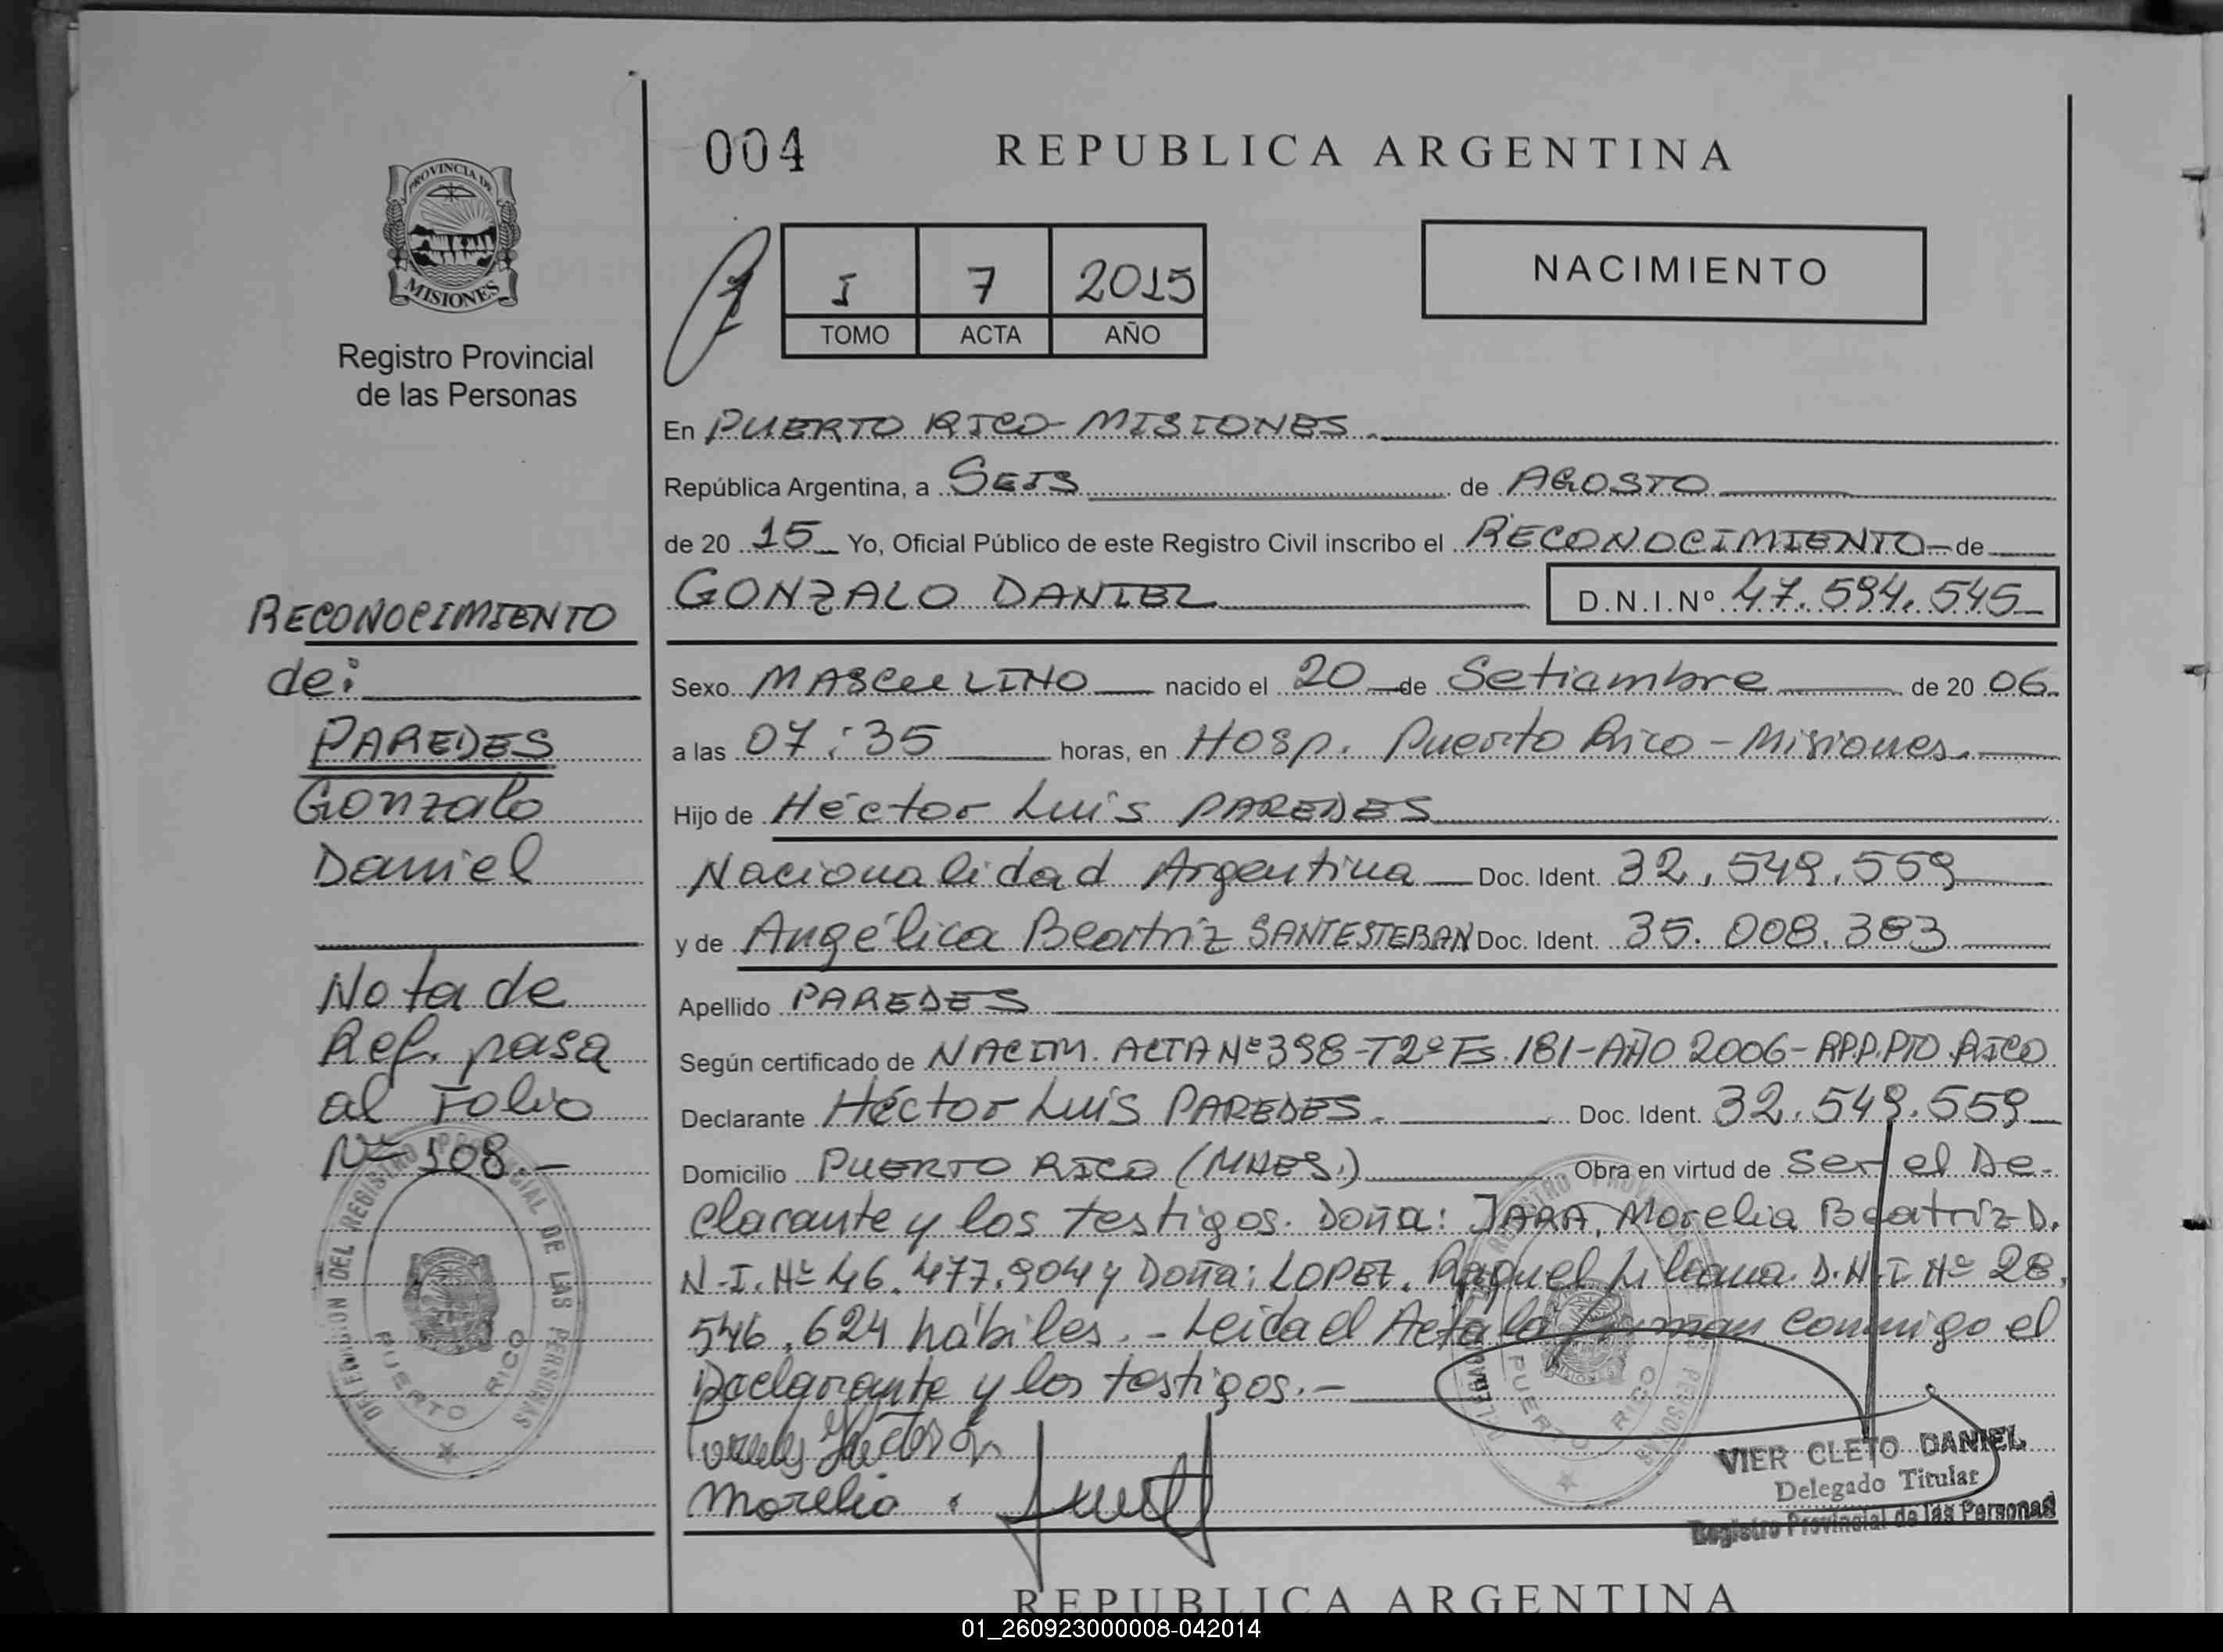 004
REPUBLICA ARGENTINA
PROVINCIA DE
MISIONES
Registro Provincial
de las Personas
I 7 2015
TOMO ACTA AÑO
NACIMIENTO
En PUERTO RICO-MISIONES.
República Argentina, a SEIS de AGOSTO
de 20 15 Yo, Oficial Público de este Registro Civil inscribo el RECONOCIMIENTO- de
GONZALO DANIEL D.N.I.Nº 47.594.545
Sexo MASCULINO nacido el 20 de Setiembre de 20 06.
a las 07:35 horas, en Hosp. Puerto Rico - Misiones.
Hijo de Héctor Luis PAREDES
Nacionalidad Argentina Doc. Ident. 32.549.559
y de Angélica Beatriz SANTESTEBAN Doc. Ident. 35.008.383
Apellido PAREDES
Según certificado de NACIM. ACTA Nº 398-T2º Fs. 181-AÑO 2006-RP.P.PTO.RICO
Declarante Héctor Luis PAREDES. Doc. Ident. 32.549.559
Domicilio PUERTO RICO (MNES.) Obra en virtud de ser el De-
clarante y los testigos. Doña: JARA, Morelia Beatriz D.
N.I. Nº 46.477.904 y Doña: LOPEZ, Raquel Liliana D.N.I Nº 28.
546.624 hábiles. - Leida el Acta la firman conmigo el
Declarante y los testigos.-
Morelia
VIER CLETO DANIEL
Delegado Titular
Registro Provincial de las Personas
RECONOCIMIENTO
de:
PAREDES
Gonzalo
Daniel
Nota de
Ref. pasa
al Folio
Nº 108.-
DELEGACION DEL REGISTRO PROVINCIAL DE LAS PERSONAS
PUERTO RICO
PUERTO RICO
REPUBLICA ARGENTINA
01_260923000008-042014